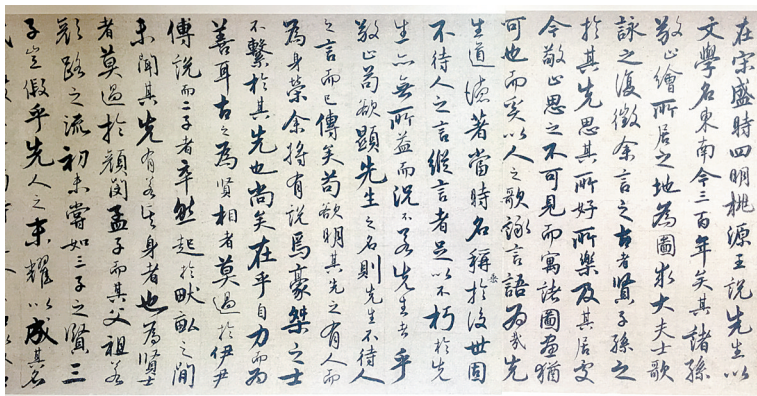 在宋盛時四明桃源王說先生以
文學名東南今三百年矣其諸孫
敬止繪所居之地為圖求大夫士歌
詠之復徵余言之古者賢子孫之
於其先思其所好所樂及其居處
今敬止思之不可見而寓諸圖畫猶
可也而奚以人之歌詠言語為哉先
生道德著當時名稱於後世固
不待人之言縱言者足以不朽於先
生亦無所益而況不若先生者乎
敬止苟欲顯先生之名則先生不待人
之言而已傳矣苟欲明其先之有人而
為身榮余將有說焉豪桀之士
不繫於其先也尚矣在乎自力而為
善耳古之為賢相者莫過於伊尹
傅說而二子者卒然起於畎畝之間
未聞其先有若其身者也為賢士
者莫過於顏閔孟子而其父祖若
顏路之流初未嘗如三子之賢三
子豈假乎先人之末耀以成其名